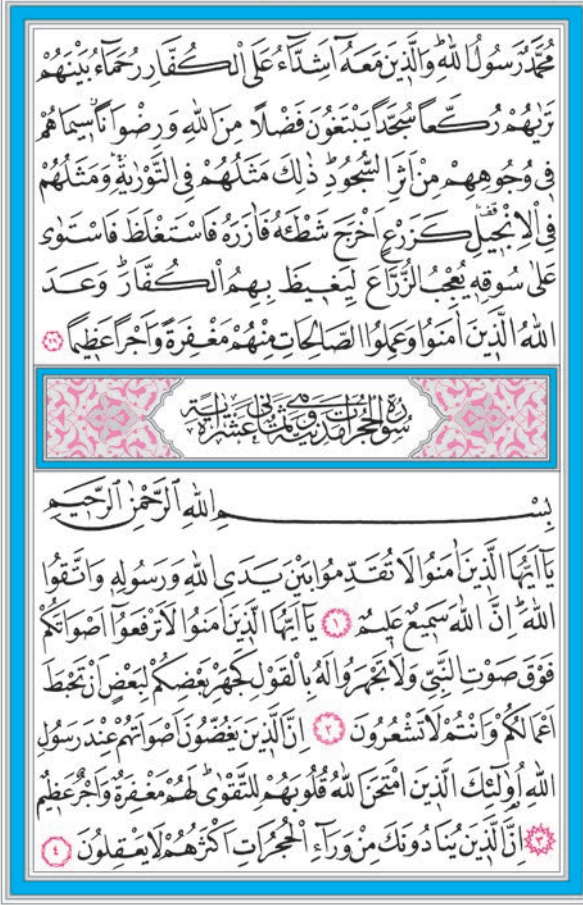 مُحَمَّدٌ رَسُولُ اللّٰهِ وَالَّذِينَ مَعَهُٓ اَشِدَّٓاءُ عَلَى الْكُفَّارِ رُحَمَٓاءُ بَيْنَهُمْ
تَرٰيهُمْ رُكَّعاً سُجَّداً يَبْتَغُونَ فَضْلاً مِنَ اللّٰهِ وَرِضْوَاناًۘ سِيمَاهُمْ
فِي وُجُوهِهِمْ مِنْ اَثَرِ السُّجُودِۜ ذٰلِكَ مَثَلُهُمْ فِي التَّوْرٰيةِۚ وَمَثَلُهُمْ
فِي الْاِنْجِيلِ۠ كَزَرْعٍ اَخْرَجَ شَطْـَٔهُ فَاٰزَرَهُ فَاسْتَغْلَظَ فَاسْتَوٰى
عَلٰى سُوقِهِ يُعْجِبُ الزُّرَّاعَ لِيَغِيظَ بِهِمُ الْكُفَّارَۜ وَعَدَ
اللّٰهُ الَّذِينَ اٰمَنُوا وَعَمِلُوا الصَّالِحَاتِ مِنْهُمْ مَغْفِرَةً وَاَجْراً عَظِيماً ﴿٢٩﴾
سُورَةُ الْحُجُرَاتِ مَدَنِيَّةٌ وَهِيَ ثَمَانِي عَشْرَةَ اٰيَةً
بِسْمِ اللّٰهِ الرَّحْمٰنِ الرَّحِيمِ
يَٓا اَيُّهَا الَّذِينَ اٰمَنُوا لَا تُقَدِّمُوا بَيْنَ يَدَيِ اللّٰهِ وَرَسُولِهِ وَاتَّقُوا
اللّٰهَۜ اِنَّ اللّٰهَ سَمِيعٌ عَلِيمٌ ﴿١﴾ يَٓا اَيُّهَا الَّذِينَ اٰمَنُوا لَا تَرْفَعُٓوا اَصْوَاتَكُمْ
فَوْقَ صَوْتِ النَّبِيِّ وَلَا تَجْهَرُوا لَهُ بِالْقَوْلِ كَجَهْرِ بَعْضِكُمْ لِبَعْضٍ اَنْ تَحْبَطَ
اَعْمَالُكُمْ وَاَنْتُمْ لَا تَشْعُرُونَ ﴿٢﴾ اِنَّ الَّذِينَ يَغُضُّونَ اَصْوَاتَهُمْ عِنْدَ رَسُولِ
اللّٰهِ اُو۬لٰٓئِكَ الَّذِينَ امْتَحَنَ اللّٰهُ قُلُوبَهُمْ لِلتَّقْوٰىۜ لَهُمْ مَغْفِرَةٌ وَاَجْرٌ عَظِيمٌ
﴿٣﴾ اِنَّ الَّذِينَ يُنَادُونَكَ مِنْ وَرَٓاءِ الْحُجُرَاتِ اَكْثَرُهُمْ لَا يَعْقِلُونَ ﴿٤﴾